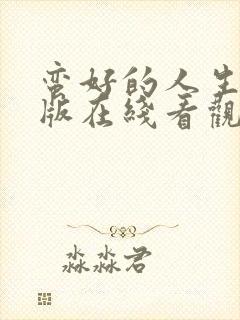 蛮好的人生
版在綫看觀
淼淼君